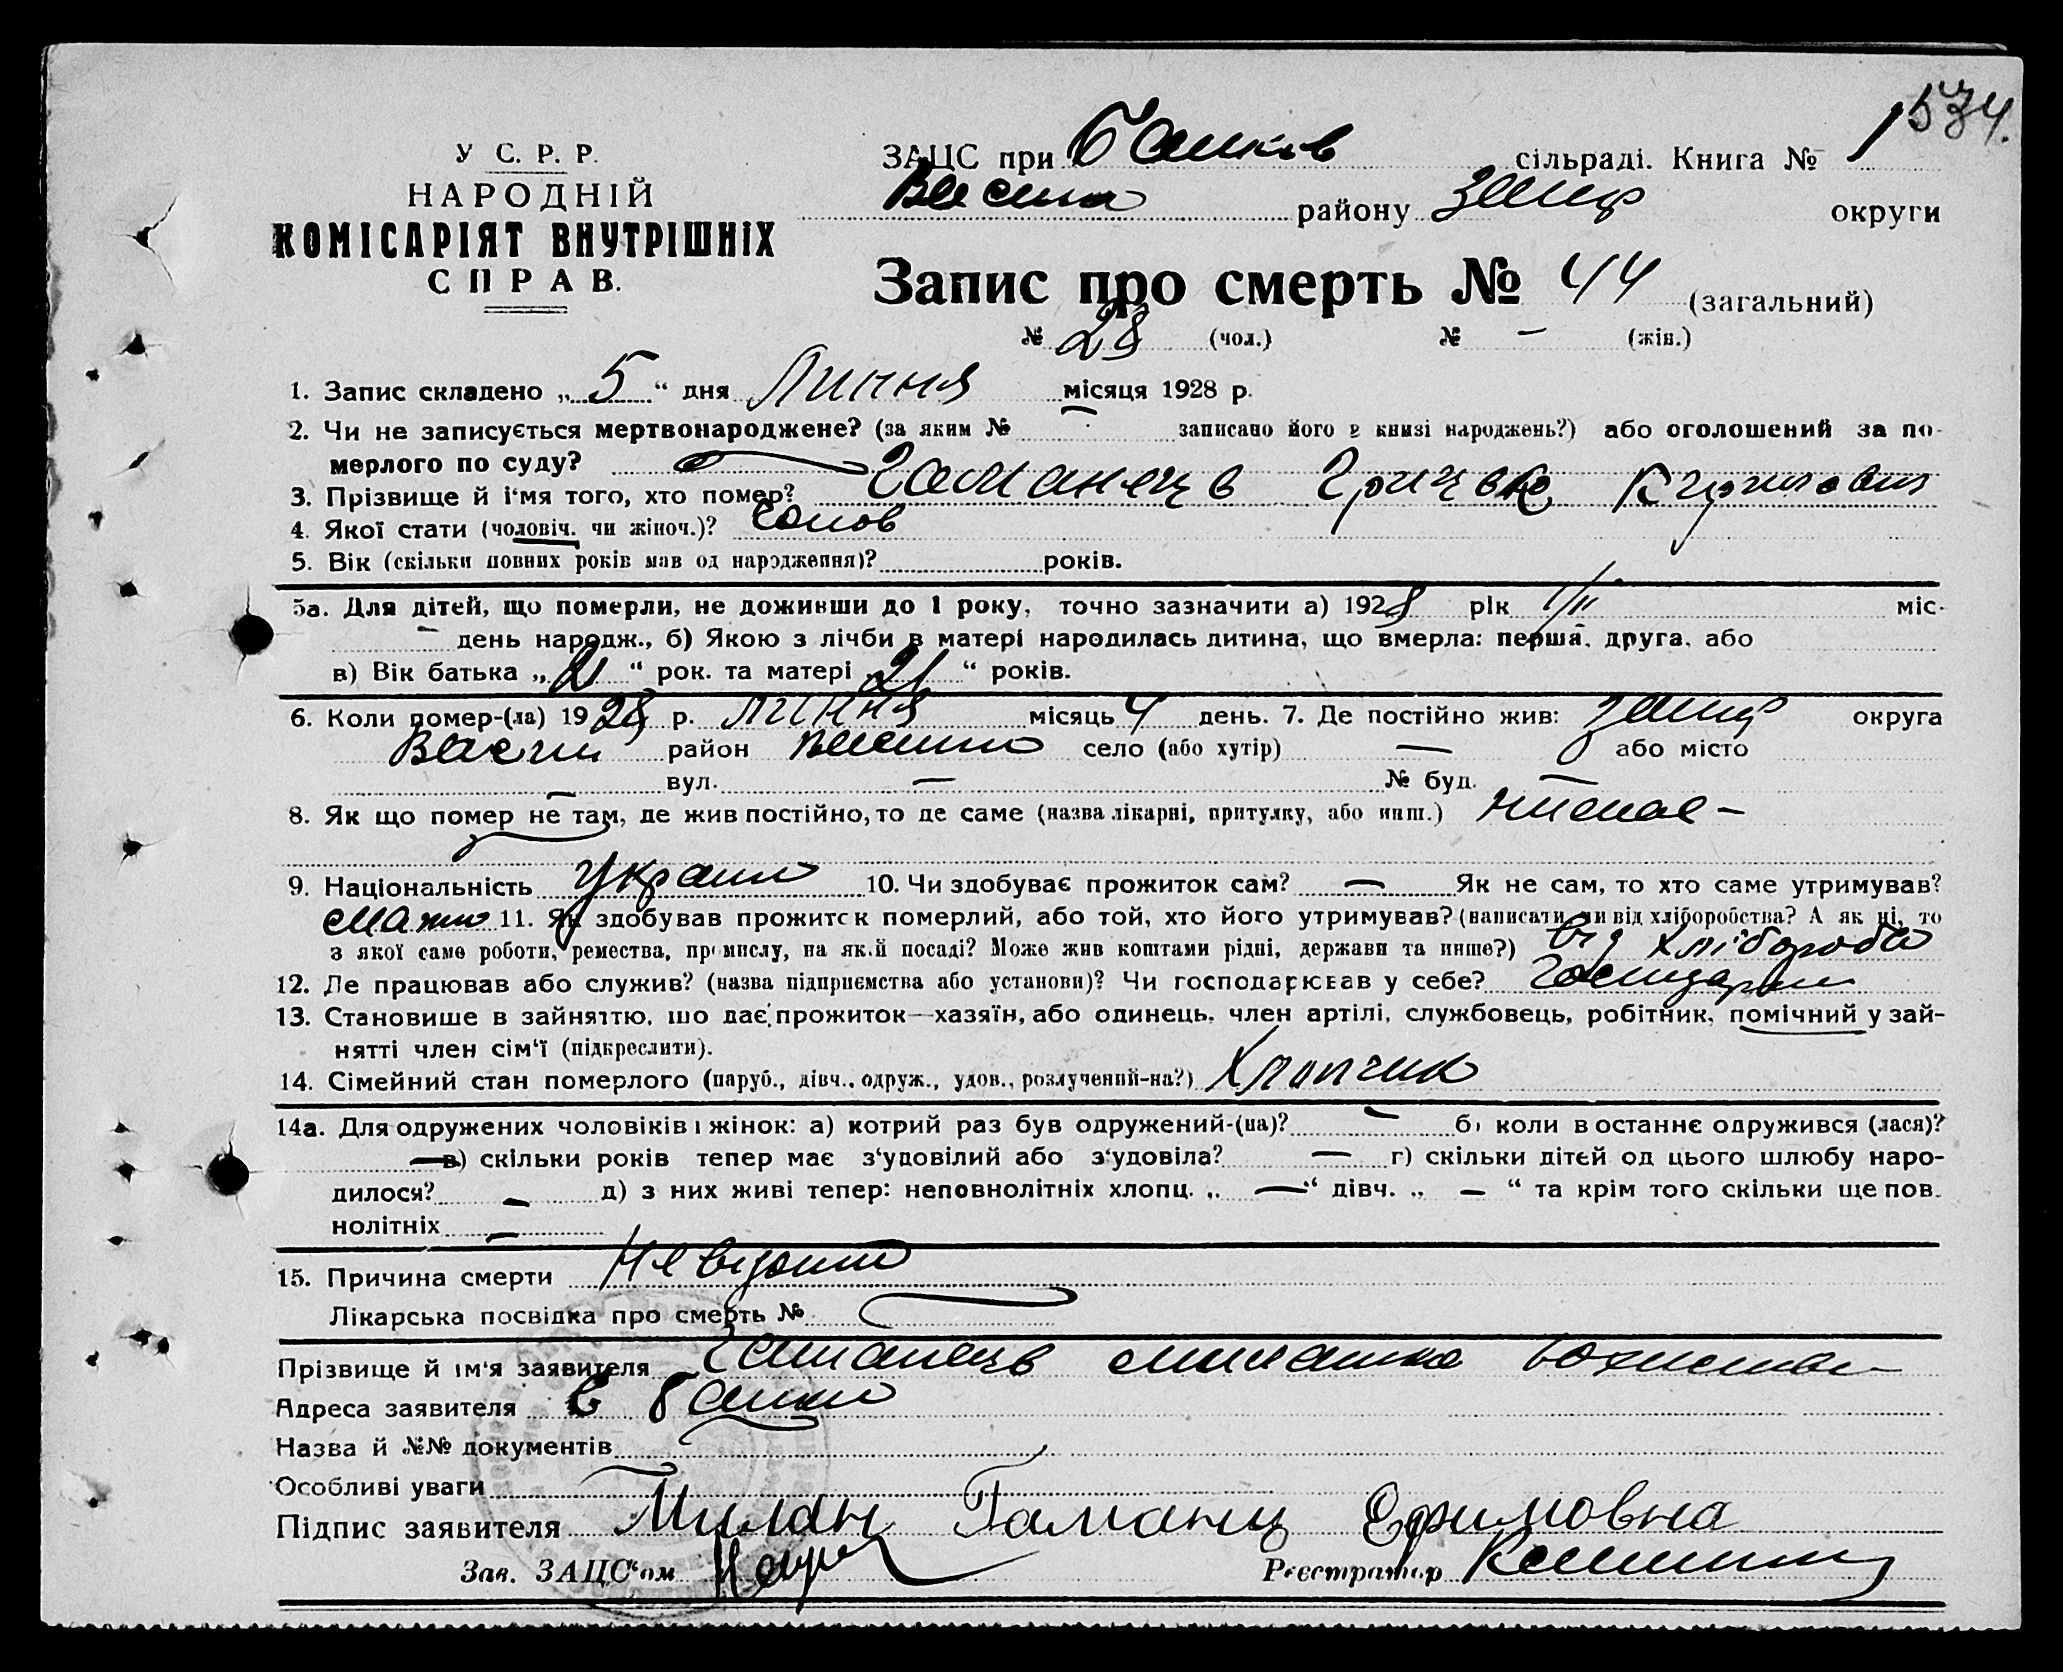 534.
У С. Р. Р.
НАРОДНІЙ
КОМІСАРІЯТ ВНУТРІШНІХ
СПРАВ.
ЗАЦС при сільраді. Книга № 1
району округи
Запис про смерть № 44 (загальний)
№ 28 (чол.) № – (жін.)
1. Запис складено „ 5 “ дня Липня місяця 1928 р.
2. Чи не записується мертвонароджене? (за яким № – записано його в книзі народжень?) або оголошений за по-
мерлого по суду?
3. Прізвище й і'мя того, хто помер? Гаманець Грицько Кирилович
4. Якої стати (чоловіч. чи жіноч.)? Чолов
5. Вік (скільки повних років мав од народження)? років.
5а. Для дітей, що померли, не доживши до 1 року, точно зазначити а) 1928 рік 1/II міс.
– день народж., б) Якою з лічби в матері народилась дитина, що вмерла: перша, друга, або
в) Вік батька „ 21 “ рок. та матері 21 “ років.
6. Коли помер-(ла) 1928 р. липня місяць 4 день. 7. Де постійно жив: округа
район село (або хутір) — або місто
вул. — № буд. —
8. Як що помер не там, де жив постійно, то де саме (назва лікарні, притулку, або инш.)
9. Національність Украин 10. Чи здобуває прожиток сам? — Як не сам, то хто саме утримував?
мати 11. Як здобував прожиток померлий, або той, хто його утримував? (написати чи від хліборобства? А як ні, то
з якої саме роботи, ремества, промислу, на якій посаді? Може жив коштами рідні, держави та инше?) від хлібороба
12. Де працював або служив? (назва підприємства або установи)? Чи господарював у себе?
13. Становище в зайняттю, що дає прожиток—хазяїн, або одинець, член артілі, службовець, робітник, помічний у зай-
нятті член сім'ї (підкреслити).
14. Сімейний стан померлого (паруб., дівч., одруж., удов., розлучений-на?) Хлопчик
14а. Для одружених чоловіків і жінок: а) котрий раз був одружений-(на)? — б) коли в останнє одружився (лася)?
— в) скільки років тепер має з'удовілий або з'удовіла? — г) скільки дітей од цього шлюбу наро-
дилося? — д) з них живі тепер: неповнолітніх хлопц. „ — “ дівч. „ — “ та крім того скільки ще пов-
нолітніх —
15. Причина смерти Невідомо
Лікарська посвідка про смерть №
Прізвище й ім'я заявителя Гаманець
Адреса заявителя с
Назва й №№ документів
Особливі уваги
Підпис заявителя Милан Гаманц Єфимовна
Зав. ЗАЦС'ом Реєстратор